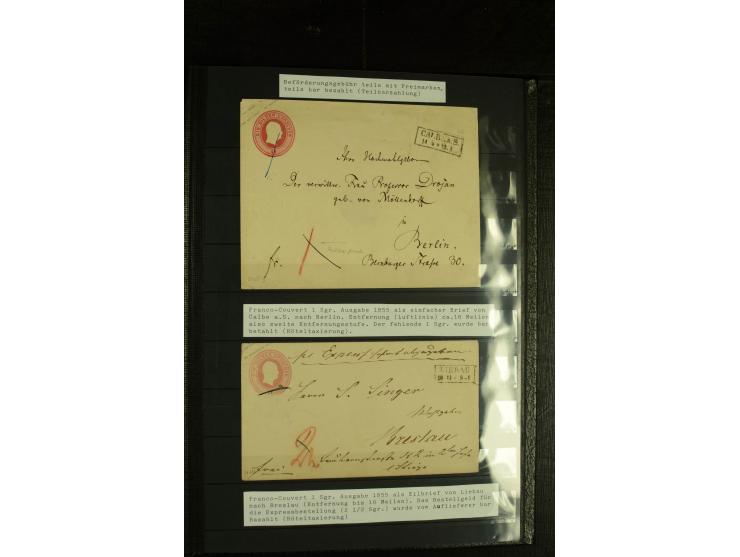 Beförderungsgebühr teils mit Freimarken,
teils bar bezahlt (Teilbarzahlung)
CALBE a. S.
Ihro Hochwohlgeboren
Der verwittw. Frau Professor Drojan
geb. von Möllendorff
in
Berlin.
Bernburger Straße 30.
fr.
Franco-Couvert 1 Sgr. Ausgabe 1855 als einfacher Brief von
Calbe a.S. nach Berlin. Entfernung (Luftlinie) ca.16 Meilen
also zweite Entfernungsstufe. Der fehlende 1 Sgr. wurde bar
bezahlt (Röteltaxierung).
per Express
LIEBAU
Herrn S. Singer
Breslau
frei
Franco-Couvert 1 Sgr. Ausgabe 1855 als Eilbrief von Liebau
nach Breslau (Entfernung bis 10 Meilen). Das Bestellgeld für
die Expressbestellung (2 1/2 Sgr.) wurde vom Auflieferer bar
bezahlt (Röteltaxierung)